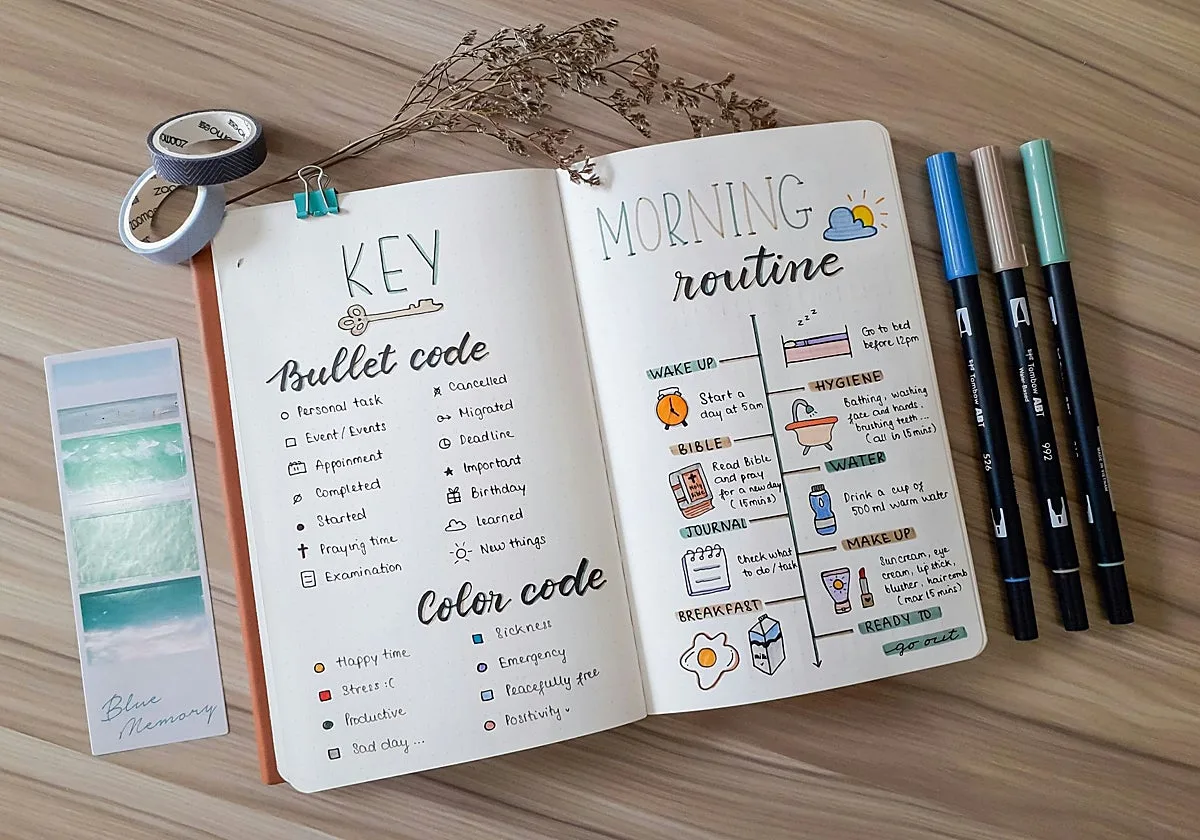 zoomo
zoomo
KEY
Bullet code
Personal task
Event / Events
Appoinment
Completed
Started
Praying time
Examination
Cancelled
Migrated
Deadline
Important
Birthday
learned
New things
Color code
Happy time
Stress :(
Productive
Sad day ...
Sickness
Emergency
Peacefully free
Positivity
MORNING
routine
z z z
Go to bed
before 12pm
WAKE UP
Start a
day at 5am
HYGIENE
Bathing, washing
face and hands,
brushing teeth...
(all in 15mins)
BIBLE
Holy
Bible
Read Bible
and pray
for a new day
(15mins)
WATER
Drink a cup of
500ml warm water
JOURNAL
Check what
to do / task
MAKE UP
Suncream, eye
cream, lip stick,
blusher, hair comb
(max 15mins)
BREAKFAST
milk
READY TO
go out
Blue
Memory
Tombow ABT
526
Tombow ABT
Water Based
992